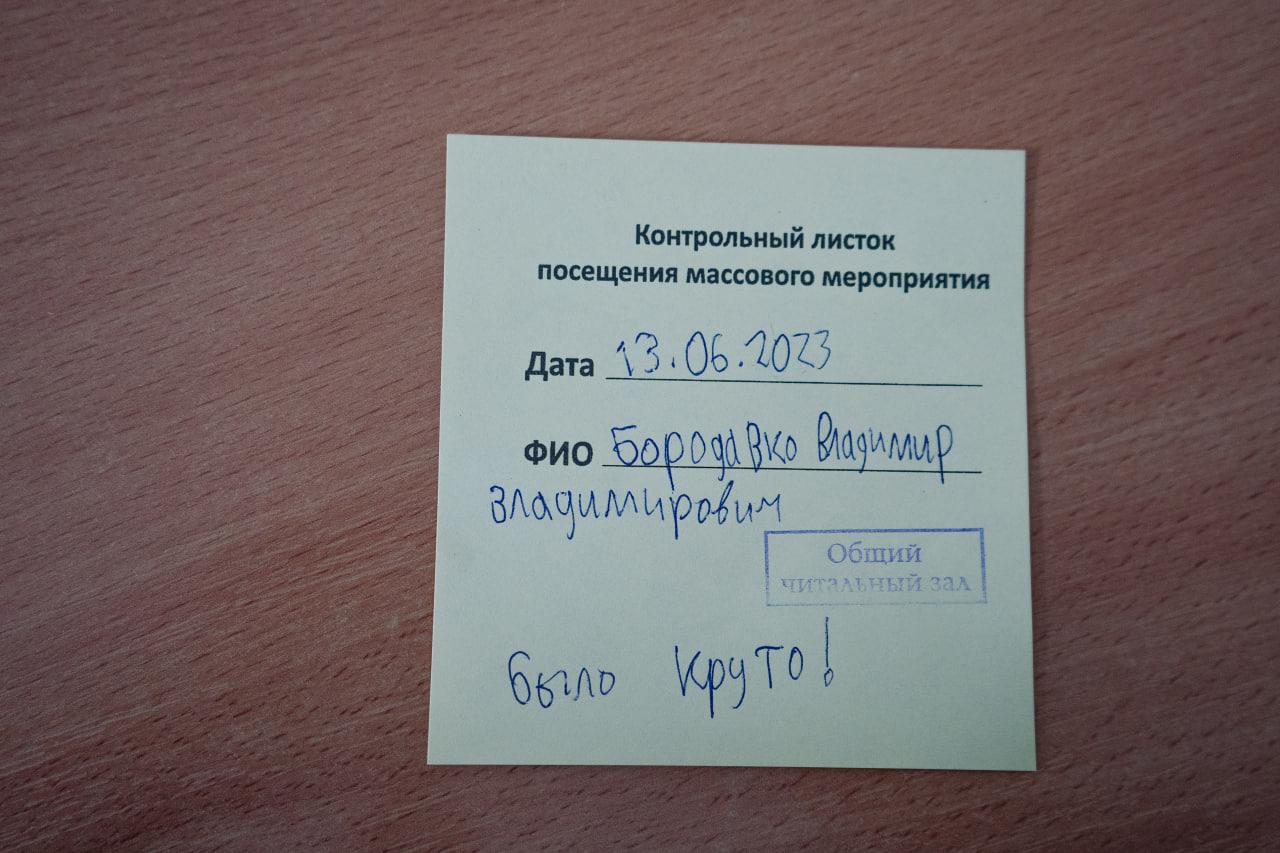 Контрольный листок
посещения массового мероприятия
Дата 13.06.2023
ФИО Бородавко Владимир
Владимирович
Общий
читальный зал
было круто!